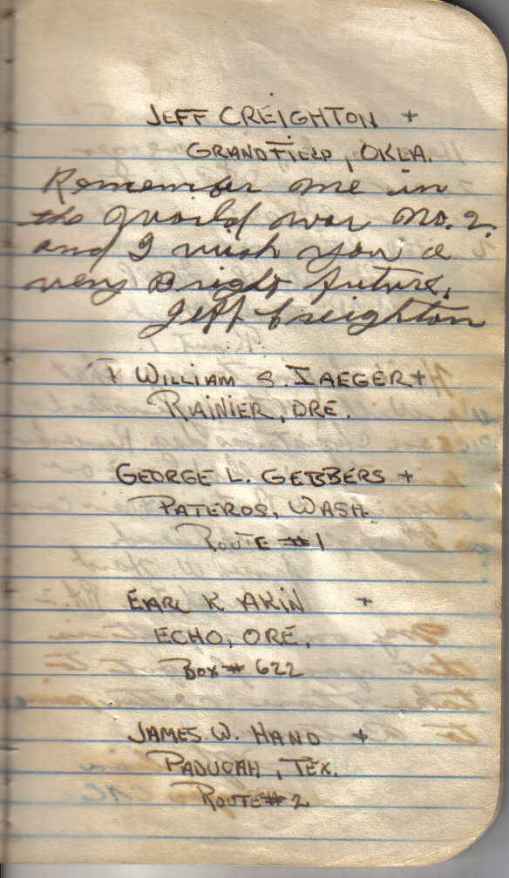 JEFF CREIGHTON +
GRANDFIELD, OKLA.
Remember me in
the world war no. 2.
and I wish you a
very Bright future.
Jeff Creighton
+ WILLIAM S. IAEGER +
RAINIER, ORE.
GEORGE L. GEBBERS +
PATEROS, WASH.
ROUTE #1
EARL K AKIN +
ECHO, ORE.
BOX # 622
JAMES W. HAND +
PADUCAH, TEX.
ROUTE # 2